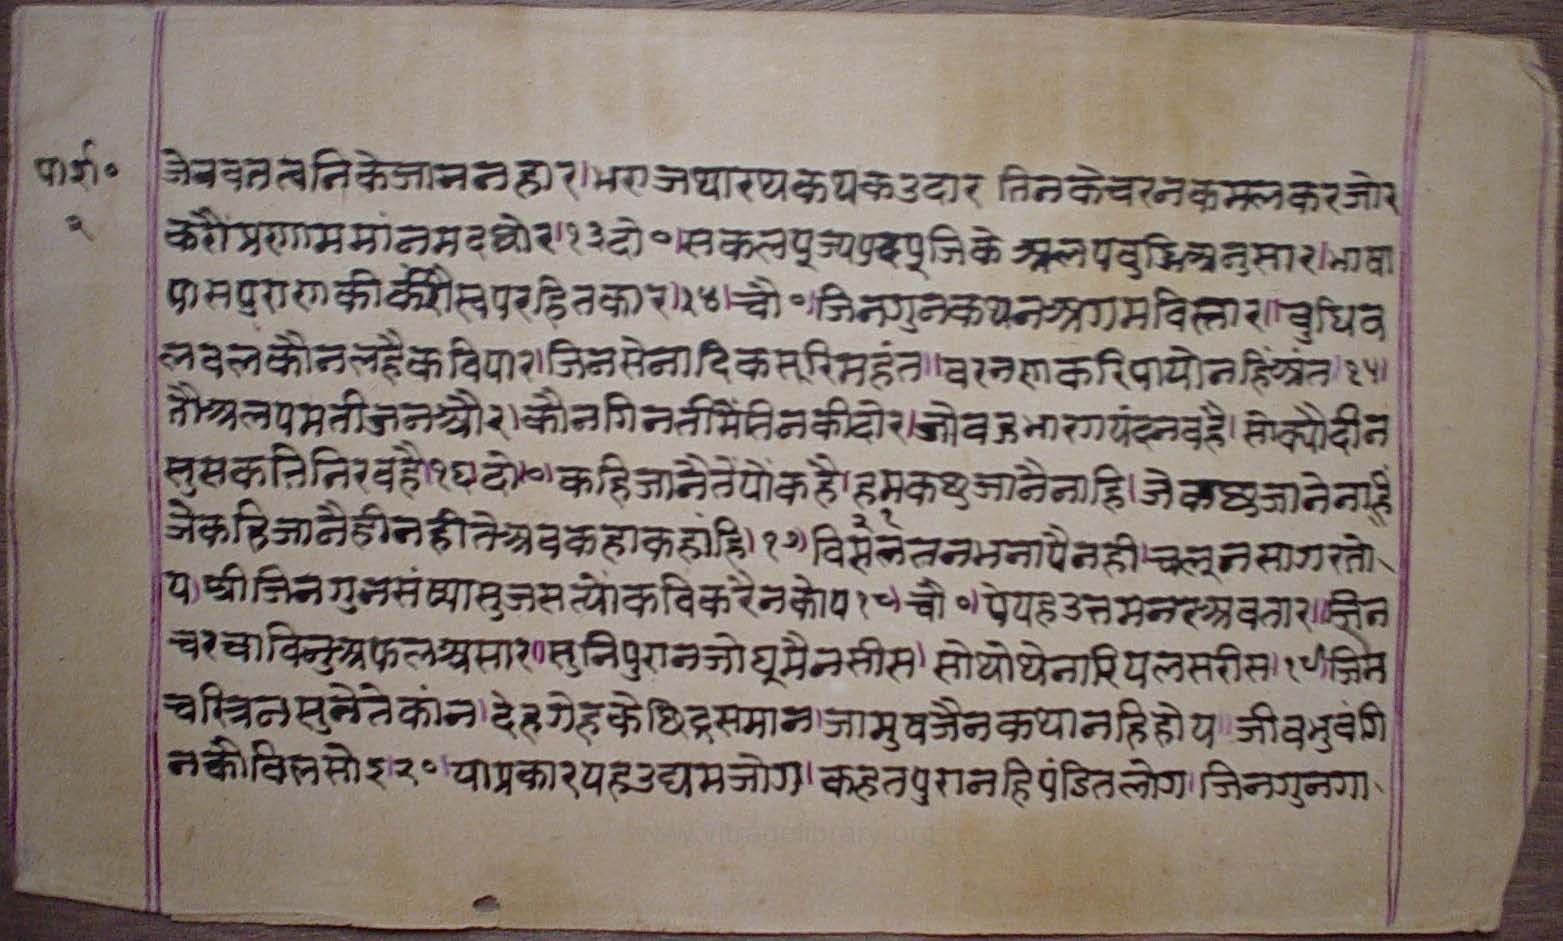 पार्श०
२
जे सब तत्वनि के जाननहार। भए जथारथ कथक उदार तिनके चरनकमल करजोर
करौं प्रणाम मांनमद छोर।१३ दो०। सकल पूज्य पद पूजिके अलपबुद्धि अनुसार। भाषा
पासपुराण की करौं स्वपरहितकार।१४। चौ०। जिनगुनकथन अगम विस्तार।। बुधिव
लवल कौन लहै कवि पार। जिनसेनादिक सूरि महंत।। वरनण करि पायो नहिं अंत।१५।
तौ अलपमती जन और। कौन गिनती मैं तिनकी दोर। जो बहु भार गयंद न वहै। सो क्यौं दीन
सुसक निरवहै।१६ दो०। कहि जानै ते यों कहै। हम कछु जानै नाहि। जे कछु जाने ना
जे कहि जानै ही नही ते अव कहा कहांहि।१७। विमै तन भ नापै नही। चलू न सागर तो
य। श्रीजिनगुनसंख्या सुजस त्यों कवि करै न कोय १८ चौ०। पै यह उत्तम नर अवतार।। जिन
चरचा विनु अफल असार।। सुनि पुरान जो घूमै न सीस। सो थोथे नारियल सरीस।१९। जिन
चरित्र न सुनै ते कांन। देहगेह के छिद्र समान। जा मुष जैनकथा नहि होय।। जीव भुवंगि
न कौ विल सोइ।२०। या प्रकार यह उद्यम जोग। कहत पुरान हि पंडित लोग। जिनगुनगा
www.vitragelibrary.org